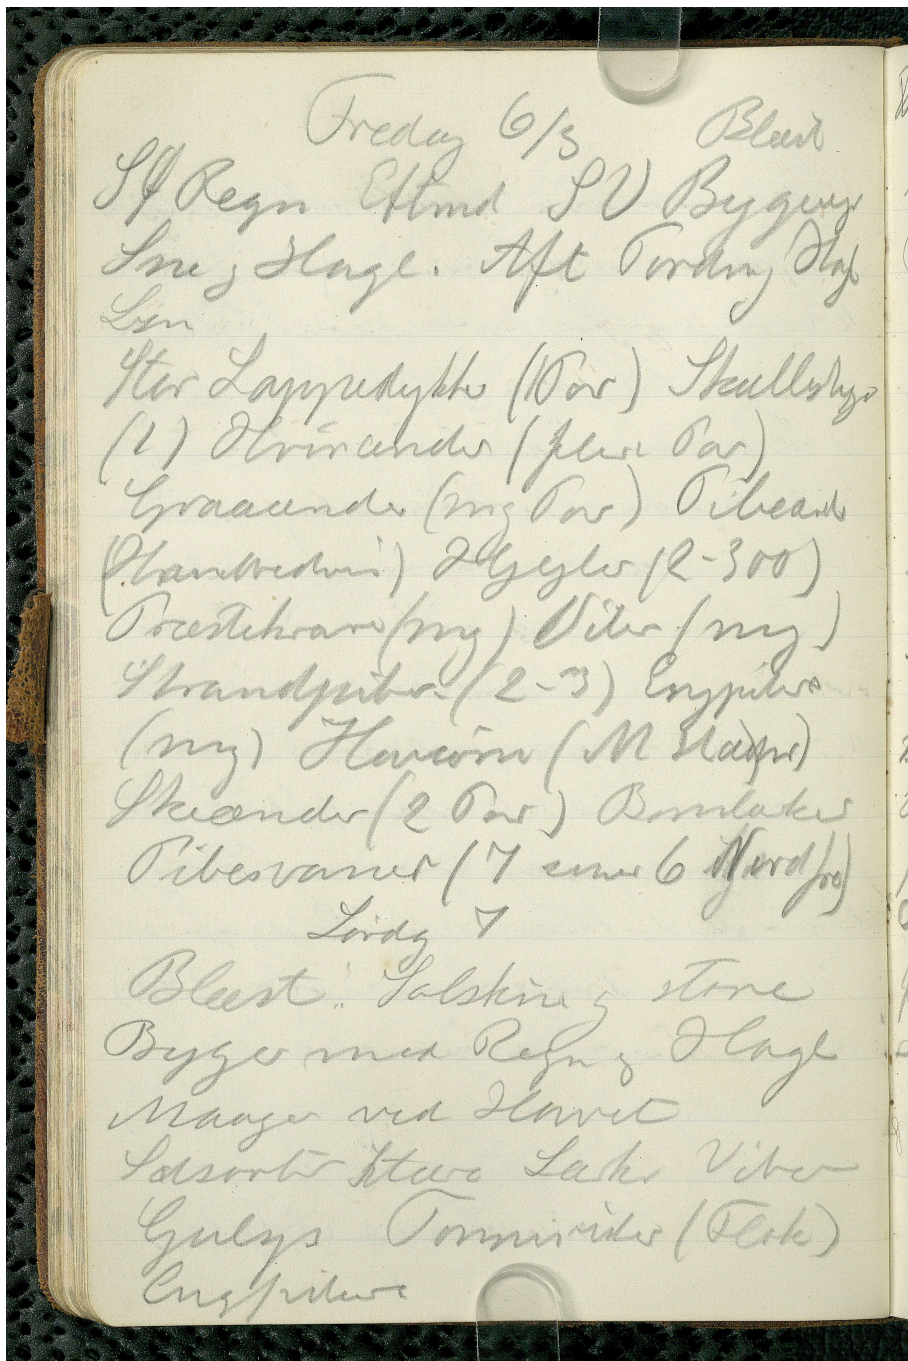 Fredag 6/3 Blæst
SØ Regn Eftmd SV Byger
Sne og Hagl. Aft Torden Hagl
Lyn
Stor Lappedykker (1 Par) Skallesluger
(1) Hvinænder (flere Par)
Graaænder (mg Par) Pibeænder
(Hundreder) Hjejler (2-300)
Præstekrave (mg) Viber (mg)
Strandpiber (2-3) Engpiber
(mg) Havørn
Skeænder (2 Par) Bomlærker
Pibesvaner (7 senere 6 Nordfra)
Lørdag 7
Blæst. Solskin og store
Byger med Regn og Hagl
Maager ved Havet
Solsorter Stære Lærke Viber
Gulsp Tornirisker (Flok)
Engpibere